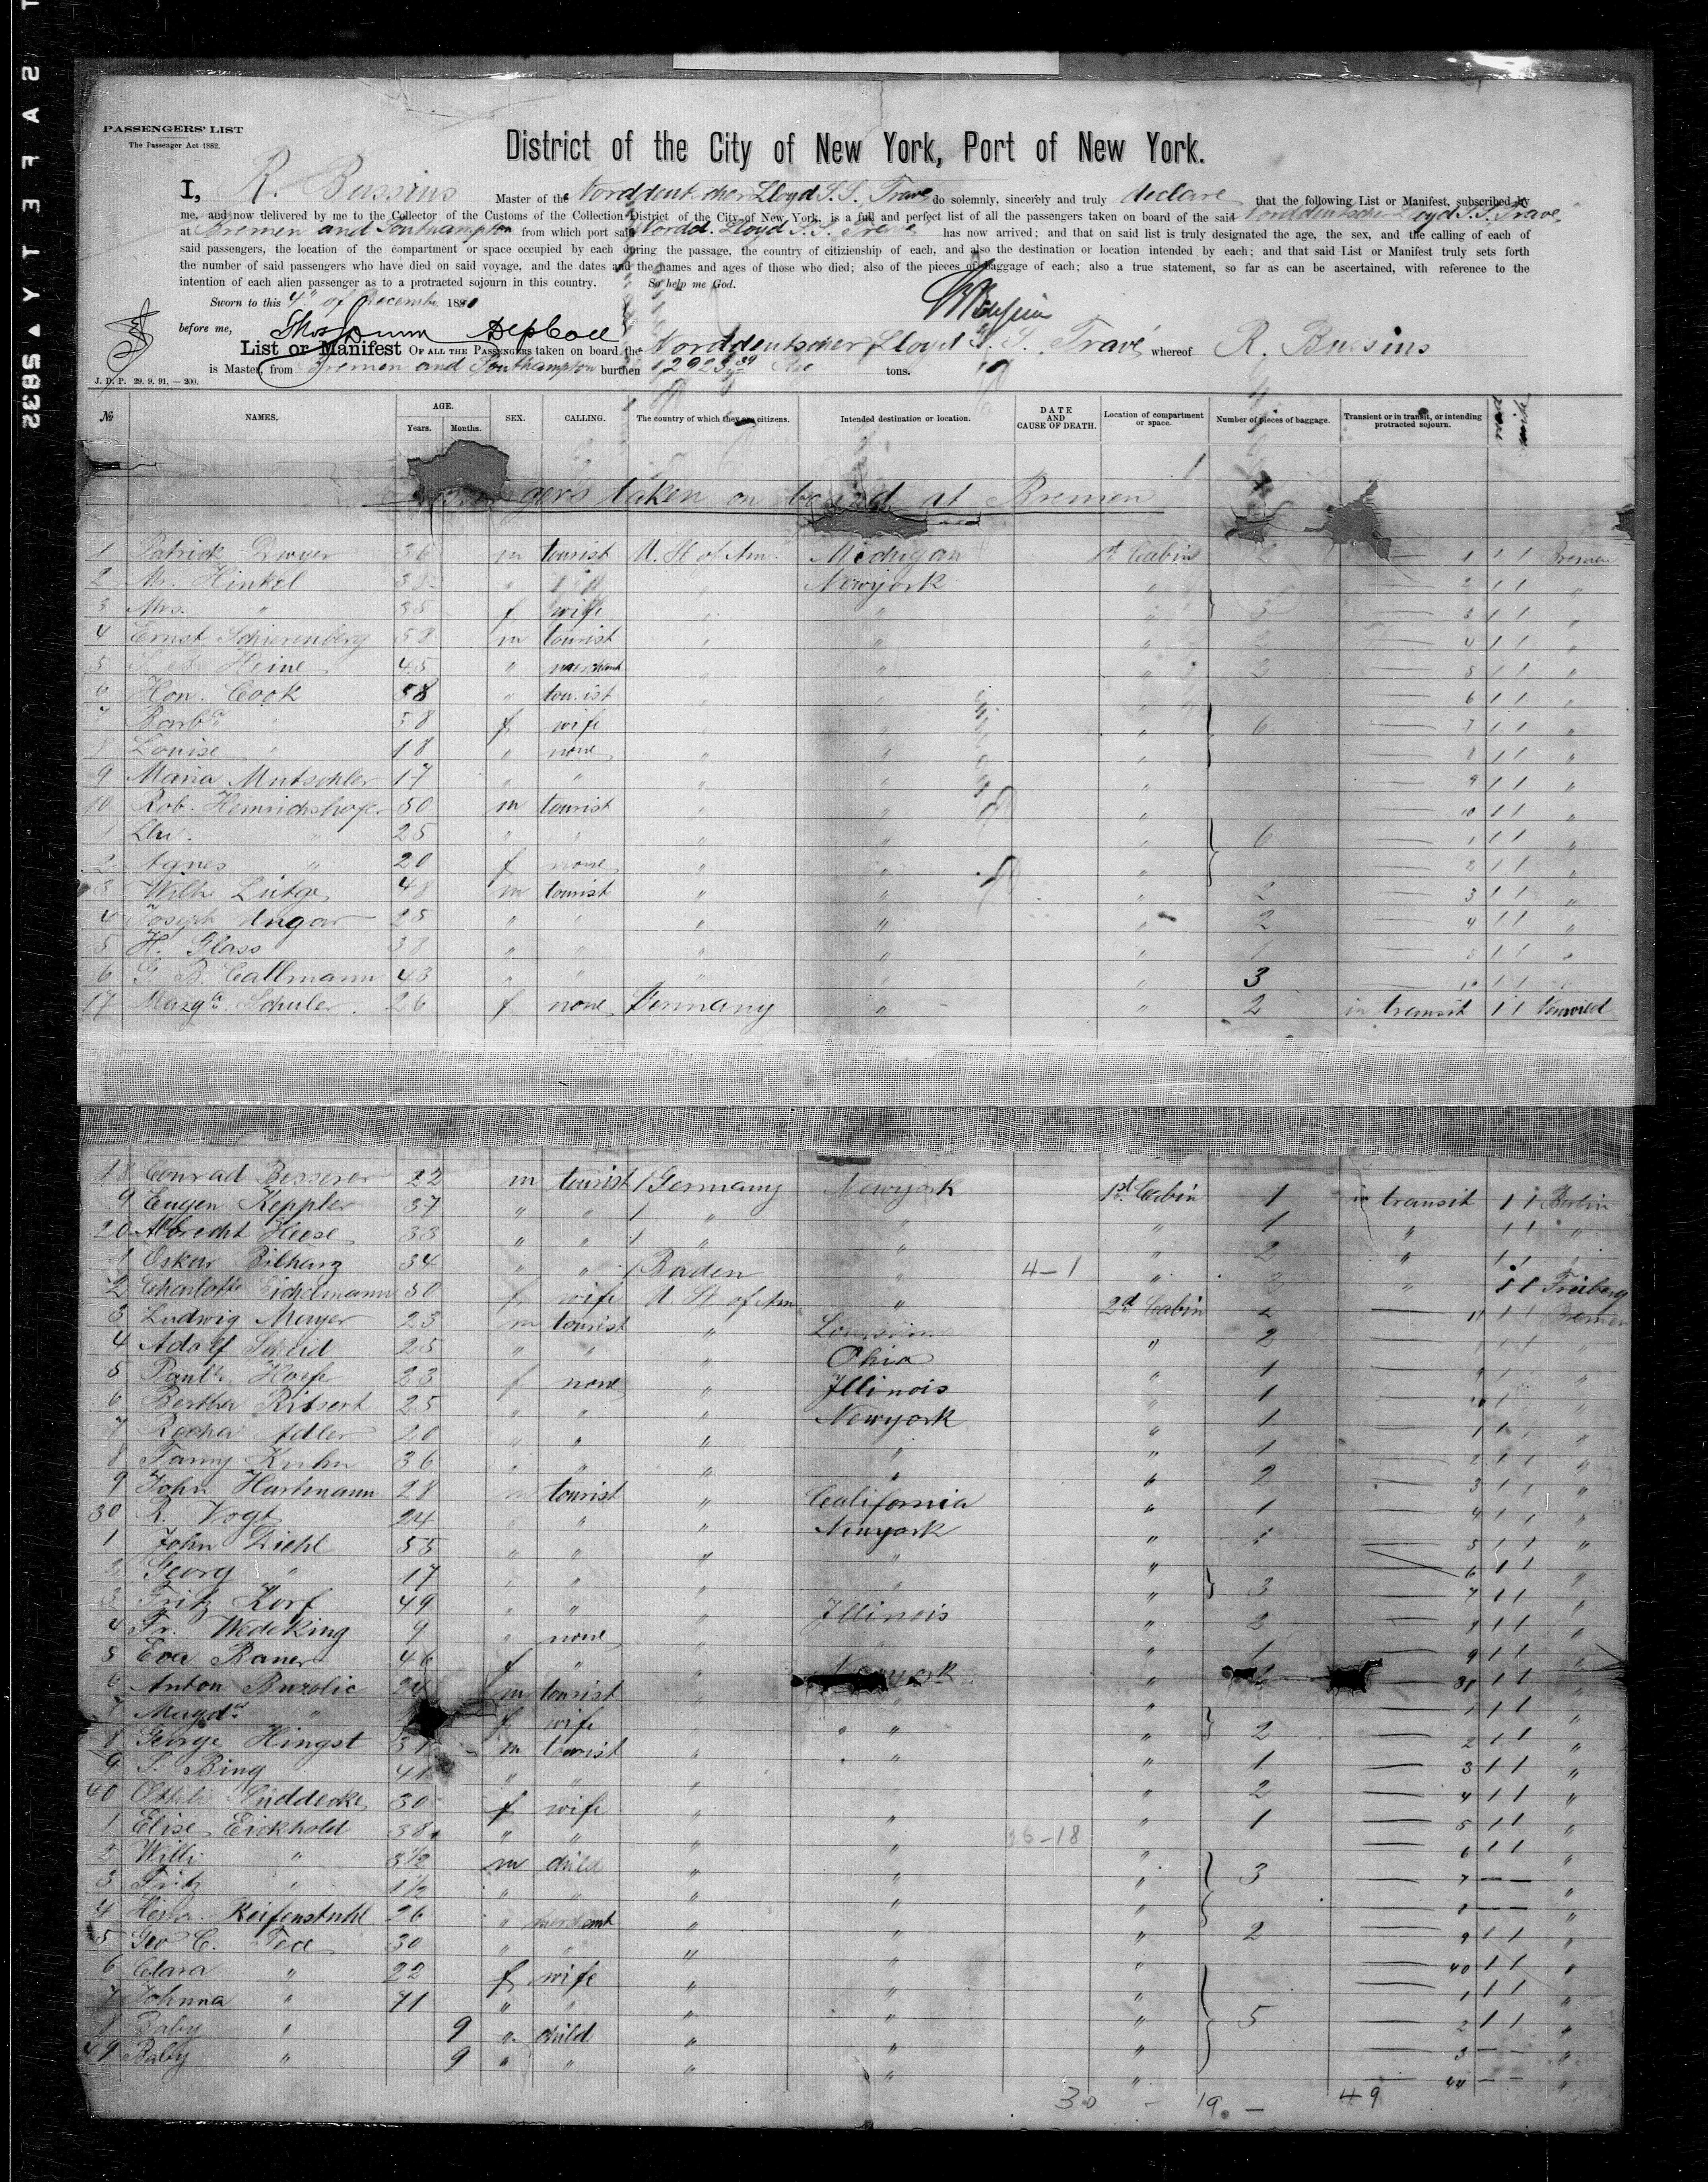 SAFETY ▲ 5832
PASSENGERS' LIST
The Passenger Act 1882.
District of the City of New York, Port of New York.
I, R. Bussius Master of the Norddeutscher Lloyd S.S. Trave do solemnly, sincerely and truly declare that the following List or Manifest, subscribed by
me, and now delivered by me to the Collector of the Customs of the Collection District of the City of New York, is a full and perfect list of all the passengers taken on board of the said Norddeutscher Lloyd S.S. Trave
at Bremen and Southampton from which port said Nordd. Lloyd S.S. Trave has now arrived; and that on said list is truly designated the age, the sex, and the calling of each of
said passengers, the location of the compartment or space occupied by each during the passage, the country of citizienship of each, and also the destination or location intended by each; and that said List or Manifest truly sets forth
the number of said passengers who have died on said voyage, and the dates and the names and ages of those who died; also of the pieces of baggage of each; also a true statement, so far as can be ascertained, with reference to the
intention of each alien passenger as to a protracted sojourn in this country. So help me God.
Sworn to this 4th of December 1891
before me, Thos Dunn Dep Coll
List or Manifest OF ALL THE PASSENGERS taken on board the Norddeutscher Lloyd S.S. Trave whereof R. Bussius
is Master, from Bremen and Southampton burthen 2923 tons.
J. D. P. 29. 9. 91. — 200.
№ NAMES. AGE. Years. Months. SEX. CALLING. The country of which they are citizens. Intended destination or location. DATE AND CAUSE OF DEATH. Location of compartment or space. Number of pieces of baggage. Transient or in transit, or intending protracted sojourn. read write
Passengers taken on board at Bremen
1 Patrick Dwyer 36 m tourist U. St of Am. Michigan 1st Cabin — 1 1 1 Bremen
2 Mr. Hinkel 38 " " Newyork " — 2 1 1 "
3 Mrs. " 35 f wife " " " 3 — 3 1 1 "
4 Ernst Schierenberg 58 m tourist " " " — 4 1 1 "
5 S. B. Heine 45 " merchant " " " 2 — 5 1 1 "
6 Hon. Cook 58 " tourist " " " — 6 1 1 "
7 Barba " 58 f wife " " " 6 — 7 1 1 "
8 Louise " 18 " none " " " — 8 1 1 "
9 Maria Mutschler 17 " " " " " — 9 1 1 "
10 Rob. Heinrichshofer 50 m tourist " " " — 10 1 1 "
1 " 25 " " " " " 6 — 1 1 1 "
2 Agnes " 20 f none " " " — 2 1 1 "
3 Wilh. Lütge 48 m tourist " " " 2 — 3 1 1 "
4 Joseph Ungar 25 " " " " " 2 — 4 1 1 "
5 H. Glass 38 " " " " " 1 — 5 1 1 "
6 G. B. Callmann 43 " " " " " 3 — 1 1
17 Marga. Schuler 26 f none Germany " " 2 in transit 1 1 Neuwied
18 Conrad Besserer 22 m tourist Germany Newyork 1st Cabin 1 in transit 1 1 Berlin
9 Eugen Keppler 37 " " " " " 1 " 1 1 "
20 Albrecht Heese 33 " " " " " 2 " 1 1
1 Oskar Bilharz 34 " " Baden " 4-1 " " 1 1 Freiburg
2 Charlotte Eichelmann 50 f wife U. St of Am " 2d Cabin 2 — 11 1 1 Bremen
3 Ludwig Mayer 23 m tourist " " 2 — 1 1 "
4 Adolf Scheid 25 " " " Ohio " 1 — 1 1 "
5 23 f none " Illinois " 1 — 1 1 "
6 Bertha Ritsert 25 " " " Newyork " 1 — 1 1 "
7 Adler 20 " " " " " 1 — 2 1 1 "
8 Fanny Kuhn 36 " " " " " 2 — 3 1 1 "
9 John Hartmann 28 m tourist " California " 1 — 4 1 1 "
30 R. Vogt 24 " " " Newyork " 1 — 5 1 1 "
1 John Diehl 55 " " " " " — 6 1 1 "
2 Georg " 17 " " " " " 3 — 7 1 1 "
3 Fritz Korf 49 " " " Illinois " 2 — 8 1 1 "
4 Fr. Wedeking 9 " none " " " 1 — 9 1 1 "
5 Eva Baner 46 f " " Newyork " — 30 1 1 "
6 Anton Buzolic 24 m tourist " " " — 1 1 1 "
7 Magda. " f wife " " " 2 — 2 1 1 "
8 George Hingst 37 m tourist " " " 1 — 3 1 1 "
9 S. Bing 41 " " " " " 2 — 4 1 1 "
40 Ottilie Lüddecke 30 f wife " " " 1 — 5 1 1 "
1 Elise Eickhold 38 " " " " 26-18 " — 6 1 1 "
2 Willi " 3½ m child " " " 3 — 7 — — "
3 Fritz " 1½ " " " " " — 8 — — "
4 Heinr. Reifenstuhl 26 " merchant " " " 2 — 9 1 1 "
5 Geo C. 30 " " " " " — 40 1 1 "
6 Clara " 22 f wife " " " — 1 1 1 "
7 Johnna " 71 " " " " " 5 — 2 1 1 "
8 Baby " 9 " child " " " — 3 — — "
49 Baby " 9 " " " " " — 44 — — "
30 - 19 — 49